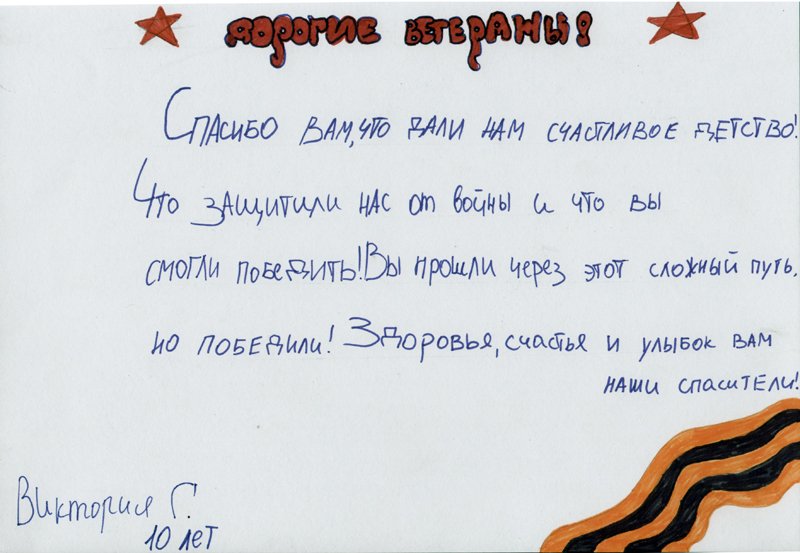 ДОРОГИЕ ВЕТЕРАНЫ!
Спасибо вам, что дали нам счастливое детство!
Что защитили нас от войны и что вы
смогли победить! Вы прошли через этот сложный путь,
но победили! Здоровья, счастья и улыбок вам
наши спасители!
Виктория Г.
10 лет